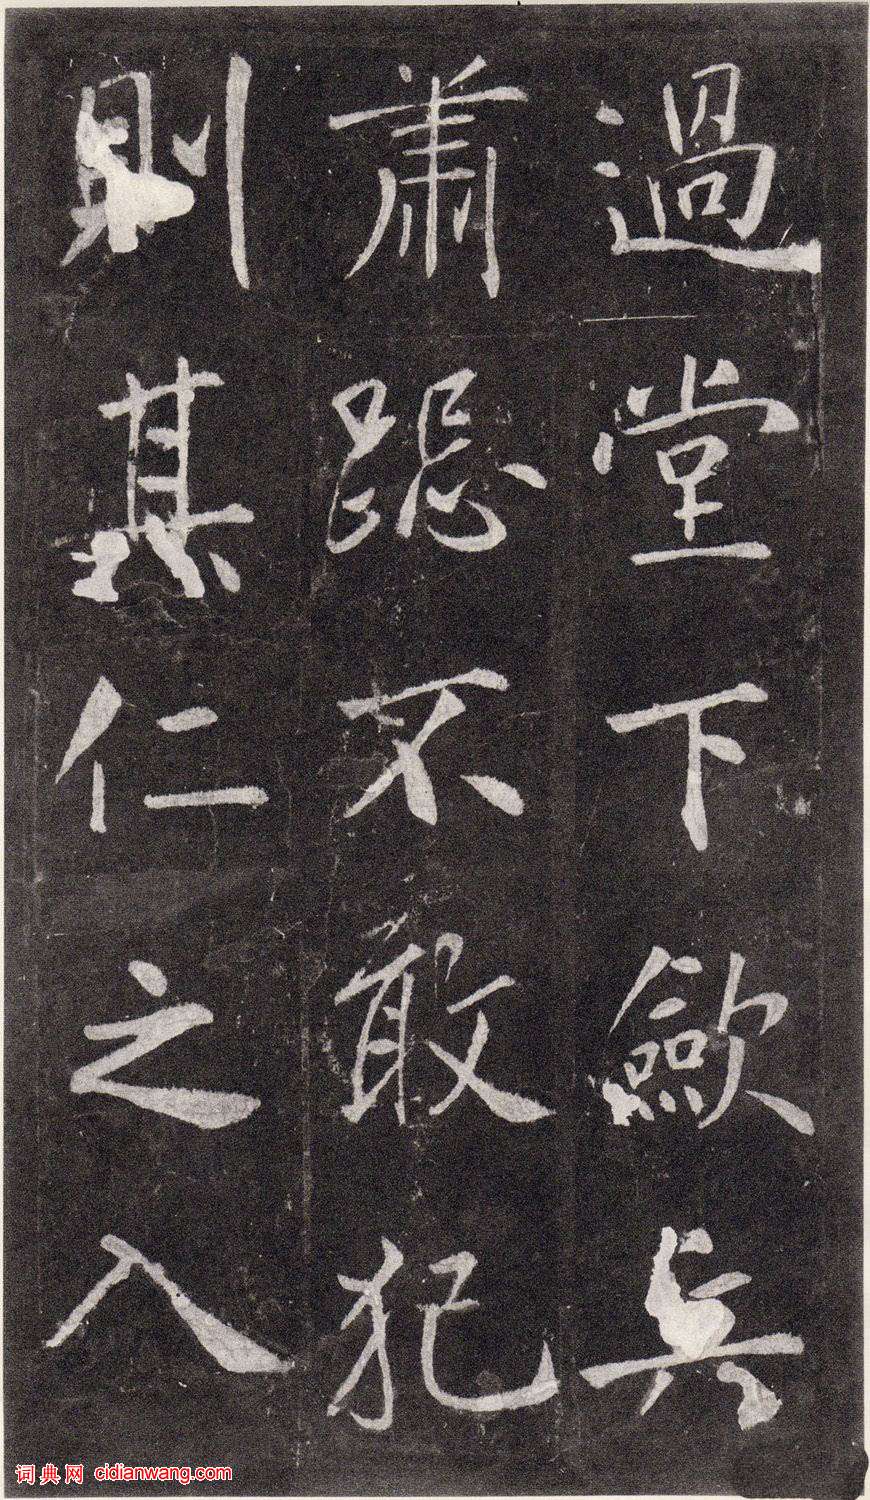 過堂下歛兵
肅跽不敢犯
則其仁之入
词典网 cidianwang.com